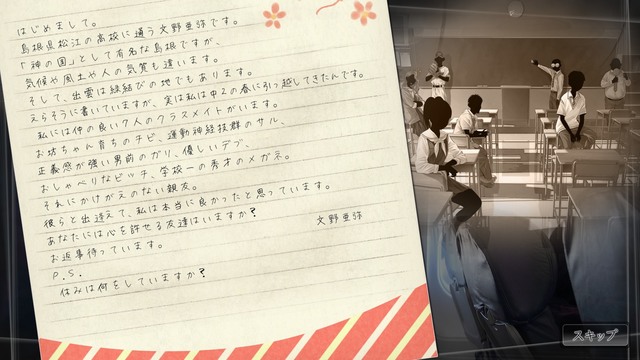 はじめまして。
島根県松江の高校に通う文野亜弥です。
「神の国」として有名な島根ですが、
気候や風土や人の気質も違います。
そして、出雲は縁結びの地でもあります。
えらそうに書いていますが、実は私は中2の春に引っ越してきたんです。
私には仲の良い7人のクラスメイトがいます。
お坊ちゃん育ちのチビ、運動神経抜群のサル、
正義感が強い男前のガリ、優しいデブ、
おしゃべりなビッチ、学校一の秀才のメガネ。
それにかけがえのない親友。
彼らと出逢えて、私は本当に良かったと思っています。
あなたには心を許せる友達はいますか?
お返事待っています。
文野亜弥
P.S.
休みは何をしていますか?
スキップ